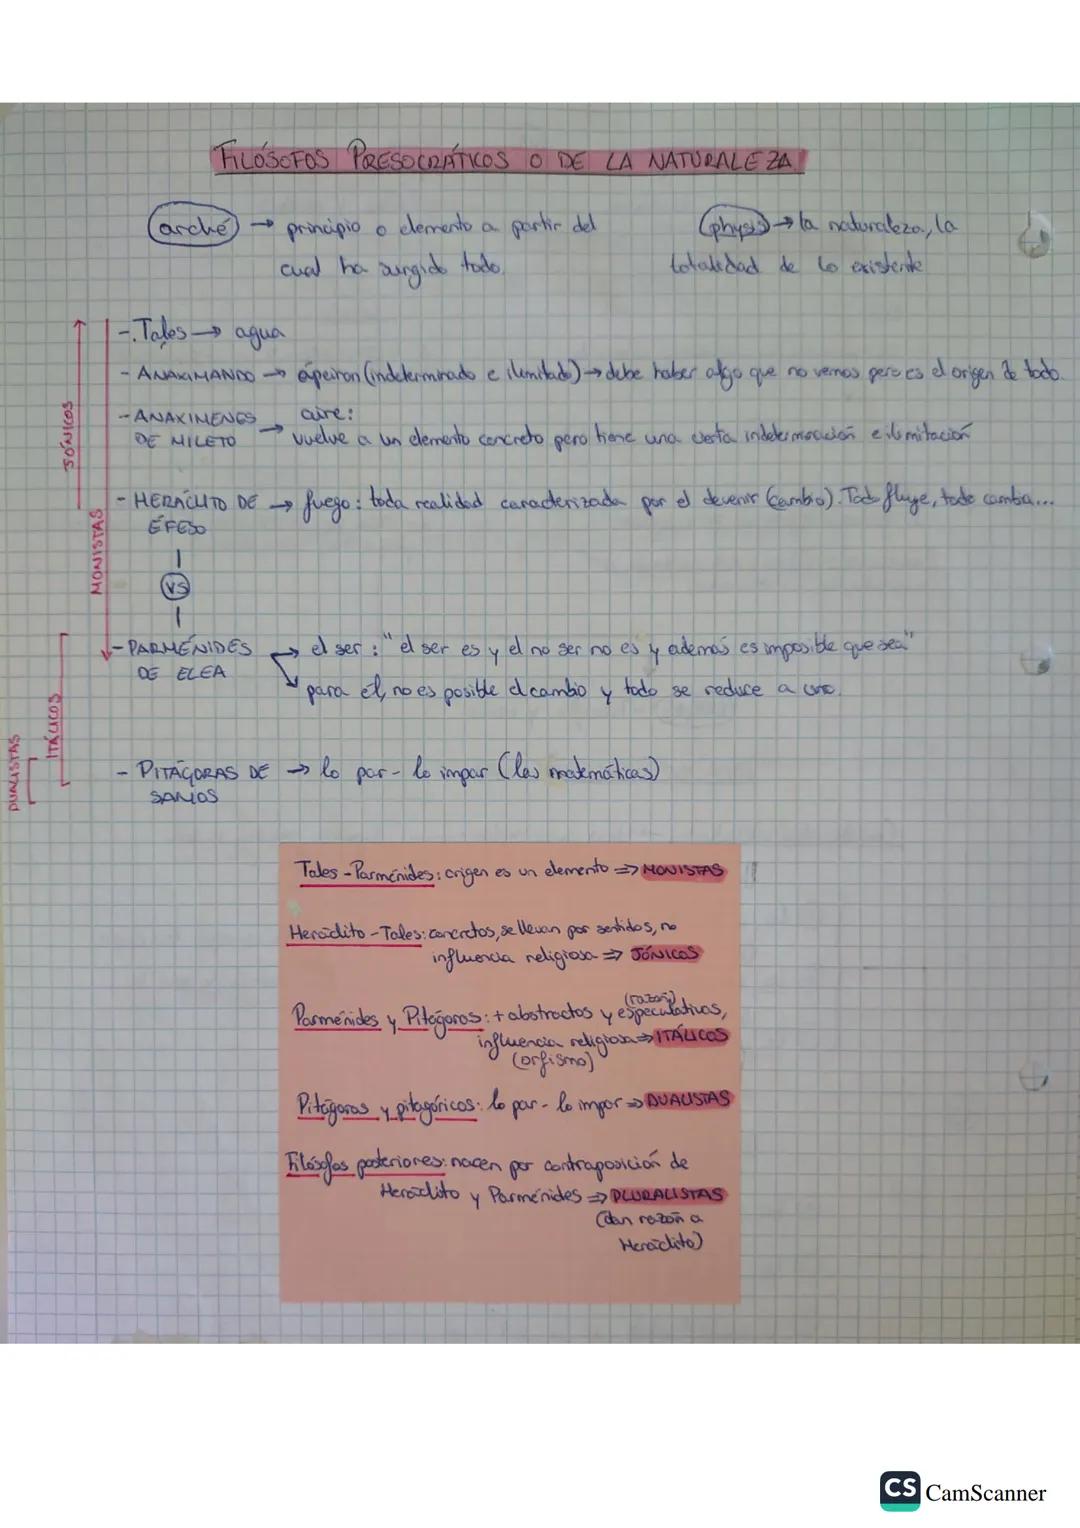 FILÓSOFOS PRESOCRÁTICOS O DE LA NATURALEZA
arché → principio o elemento a partir del
cual ha surgido todo.
physis → la naturaleza, la
totalidad de lo existente
JÓNICOS
MONISTAS
ITÁLICOS
DUALISTAS
-. Tales → agua
- ANAXIMANDO → ápeiron (indeterminado e ilimitado) → debe haber algo que no vemos pero es el origen de todo.
- ANAXIMENES DE MILETO → aire:
vuelve a un elemento concreto pero tiene una cierta indeterminación e ilimitación
- HERÁCLITO DE ÉFESO → fuego: toda realidad caracterizada por el devenir (cambio). Todo fluye, todo cambia...
VS
- PARMÉNIDES DE ELEA → el ser: "el ser es y el no ser no es y además es imposible que sea"
para él, no es posible el cambio y todo se reduce a uno.
- PITÁGORAS DE SAMOS → lo par - lo impar (las matemáticas)
Tales - Parménides: origen es un elemento ⇒ MONISTAS
Heráclito - Tales: concretos, se llevan por sentidos, no
influencia religiosa ⇒ JÓNICOS
Parménides y Pitágoras: + abstractos y especulativos, (razón)
influencia religiosa ⇒ ITÁLICOS
(orfismo)
Pitágoras y pitagóricos: lo par - lo impar ⇒ DUALISTAS
Filósofos posteriores: nacen por contraposición de
Heráclito y Parménides ⇒ PLURALISTAS
(dan razón a
Heráclito)
CS CamScanner